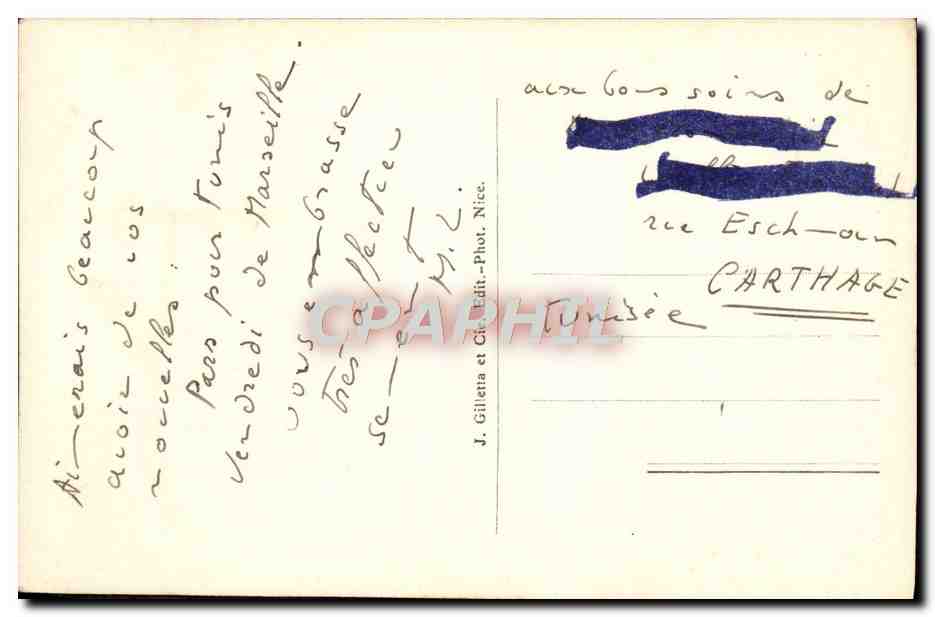 Aimerais beaucoup
avoir de vos
nouvelles.
Pars pour Tunis
Vendredi de Marseille.
Vous embrasse
très affectueu
sement
M.L.
J. Gilletta et Cie. Edit.-Phot. Nice.
aux bons soins de
rue Eschmoun
CARTHAGE
Tunisée
CPAPHIL